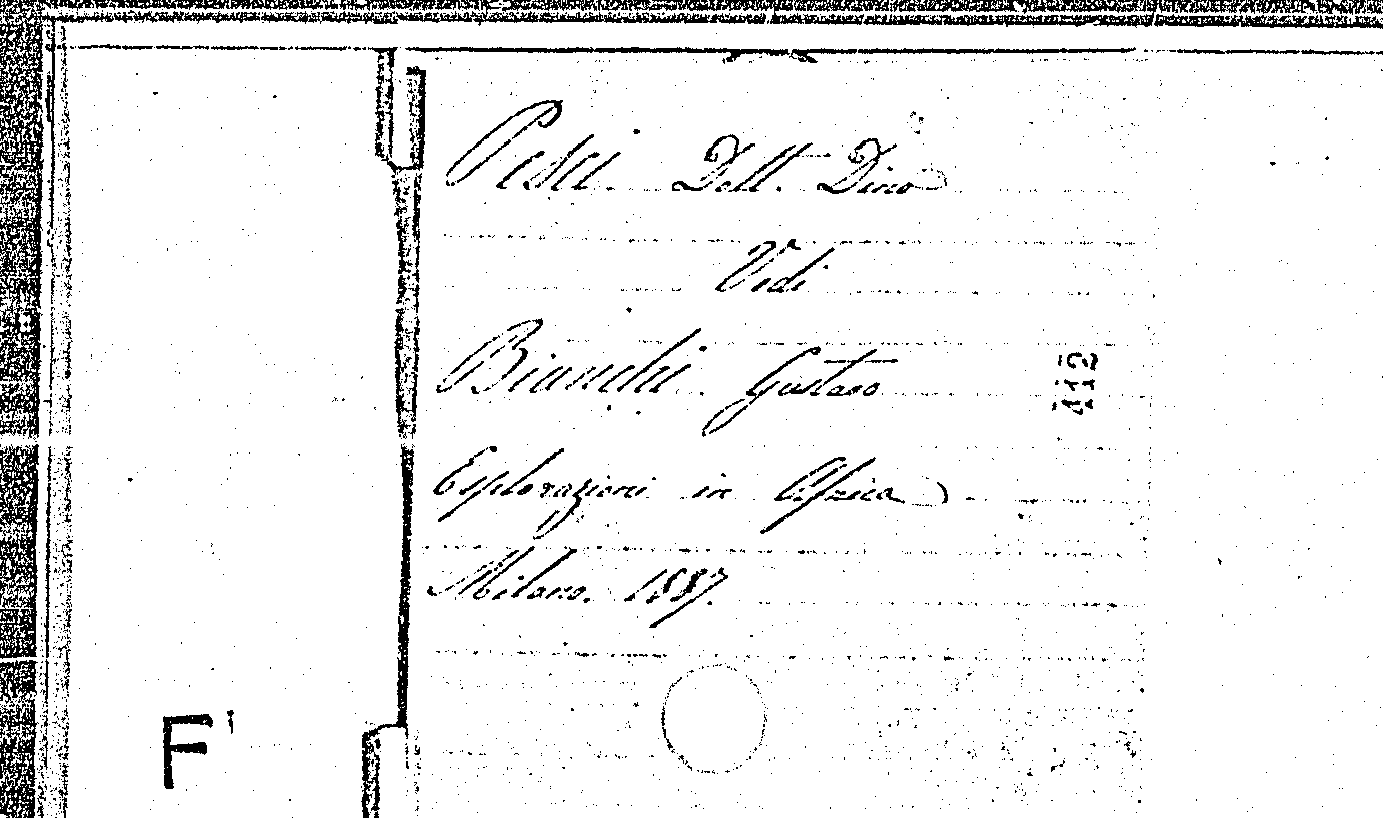 Pesci Dott. Dino
Vedi
Bianchi Gustavo
112
Esplorazioni in Africa
Milano. 1887.
F